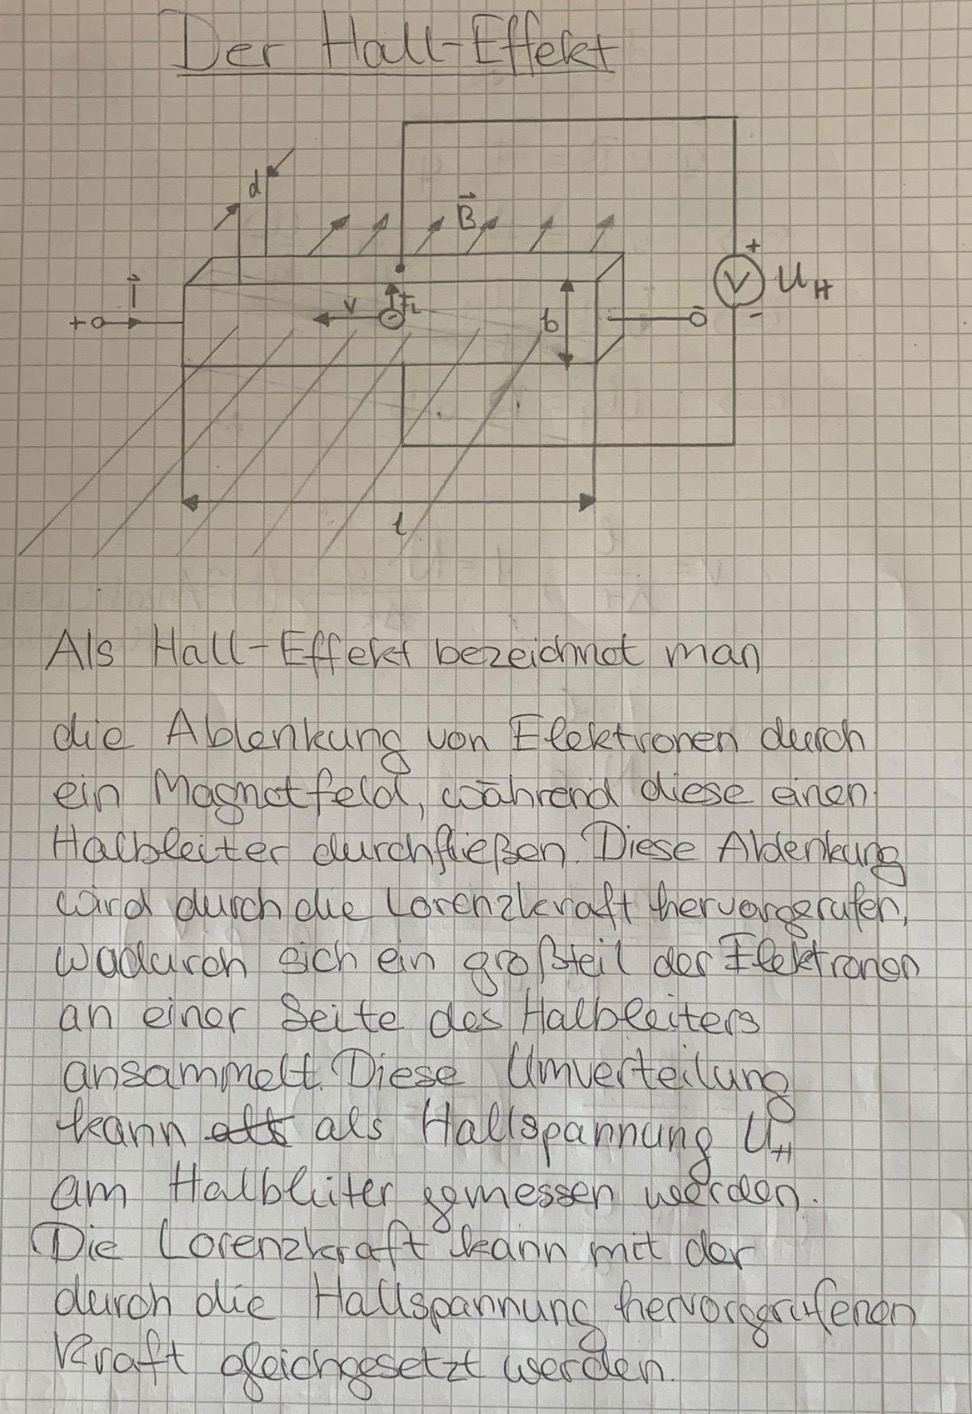 Der Hall-Effekt
d
B
I
+
v
FL
b
+
V
UH
-
l
Als Hall-Effekt bezeichnet man
die Ablenkung von Elektronen durch
ein Magnetfeld, während diese einen
Halbleiter durchfließen. Diese Ablenkung
wird durch die Lorenzkraft hervorgerufen,
wodurch sich ein großteil der Elektronen
an einer Seite des Halbleiters
ansammelt. Diese Umverteilung
kann als Hallspannung UH
am Halbleiter gemessen werden.
Die Lorenzkraft kann mit der
durch die Hallspannung hervorgrufenen
Kraft gleichgesetzt werden.